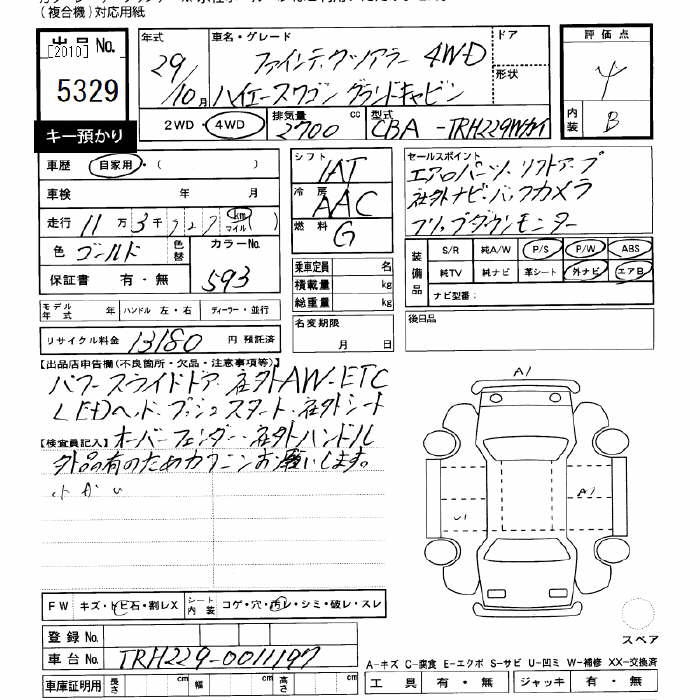 (複合機)対応用紙
出品No.
[2010]
5329
キー預かり
年式
29/10月
車名・グレード
ファインテックツアラー 4WD
ハイエースワゴン グランドキャビン
ドア
形状
2WD・4WD
排気量
2700 cc
型式
CBA-TRH229W カイ
評価点
4
内装
B
車歴 自家用・( )
車検 年 月
走行 11万3千727 km マイル ( )
色 ゴールド 色替
カラーNo. 593
保証書 有・無
シフト IAT
冷房 AAC
燃料 G
乗車定員 名
積載量 kg
総重量 kg
名変期限
月 日
セールスポイント
エアロパーツ・リフトアップ
社外ナビ・バックカメラ
フリップダウンモニター
装備品
S/R 純A/W P/S P/W ABS
純TV 純ナビ 革シート 外ナビ エアB
ナビ型番:
後日品
モデル年式 年 ハンドル 左・右 ディーラー・並行
リサイクル料金 13180 円 預託済
【出品店申告欄(不良箇所・欠品・注意事項等)】
パワースライドドア・社外AW・ETC
LEDヘッド・プッシュスタート・社外シート
【検査員記入】 オーバーフェンダー・社外ハンドル
外品有のためカクニンお願いします。
A1
A1
U1
FW キズ・トビ石・割レX
シート内装 コゲ・穴・汚レ・シミ・破レ・スレ
登録No.
車台No. TRH229-0011197
車庫証明用 長さ 幅 高さ
スペア
A-キズ C-腐食 E-エクボ S-サビ U-凹ミ W-補修 XX-交換済
工具 有・無 ジャッキ 有・無